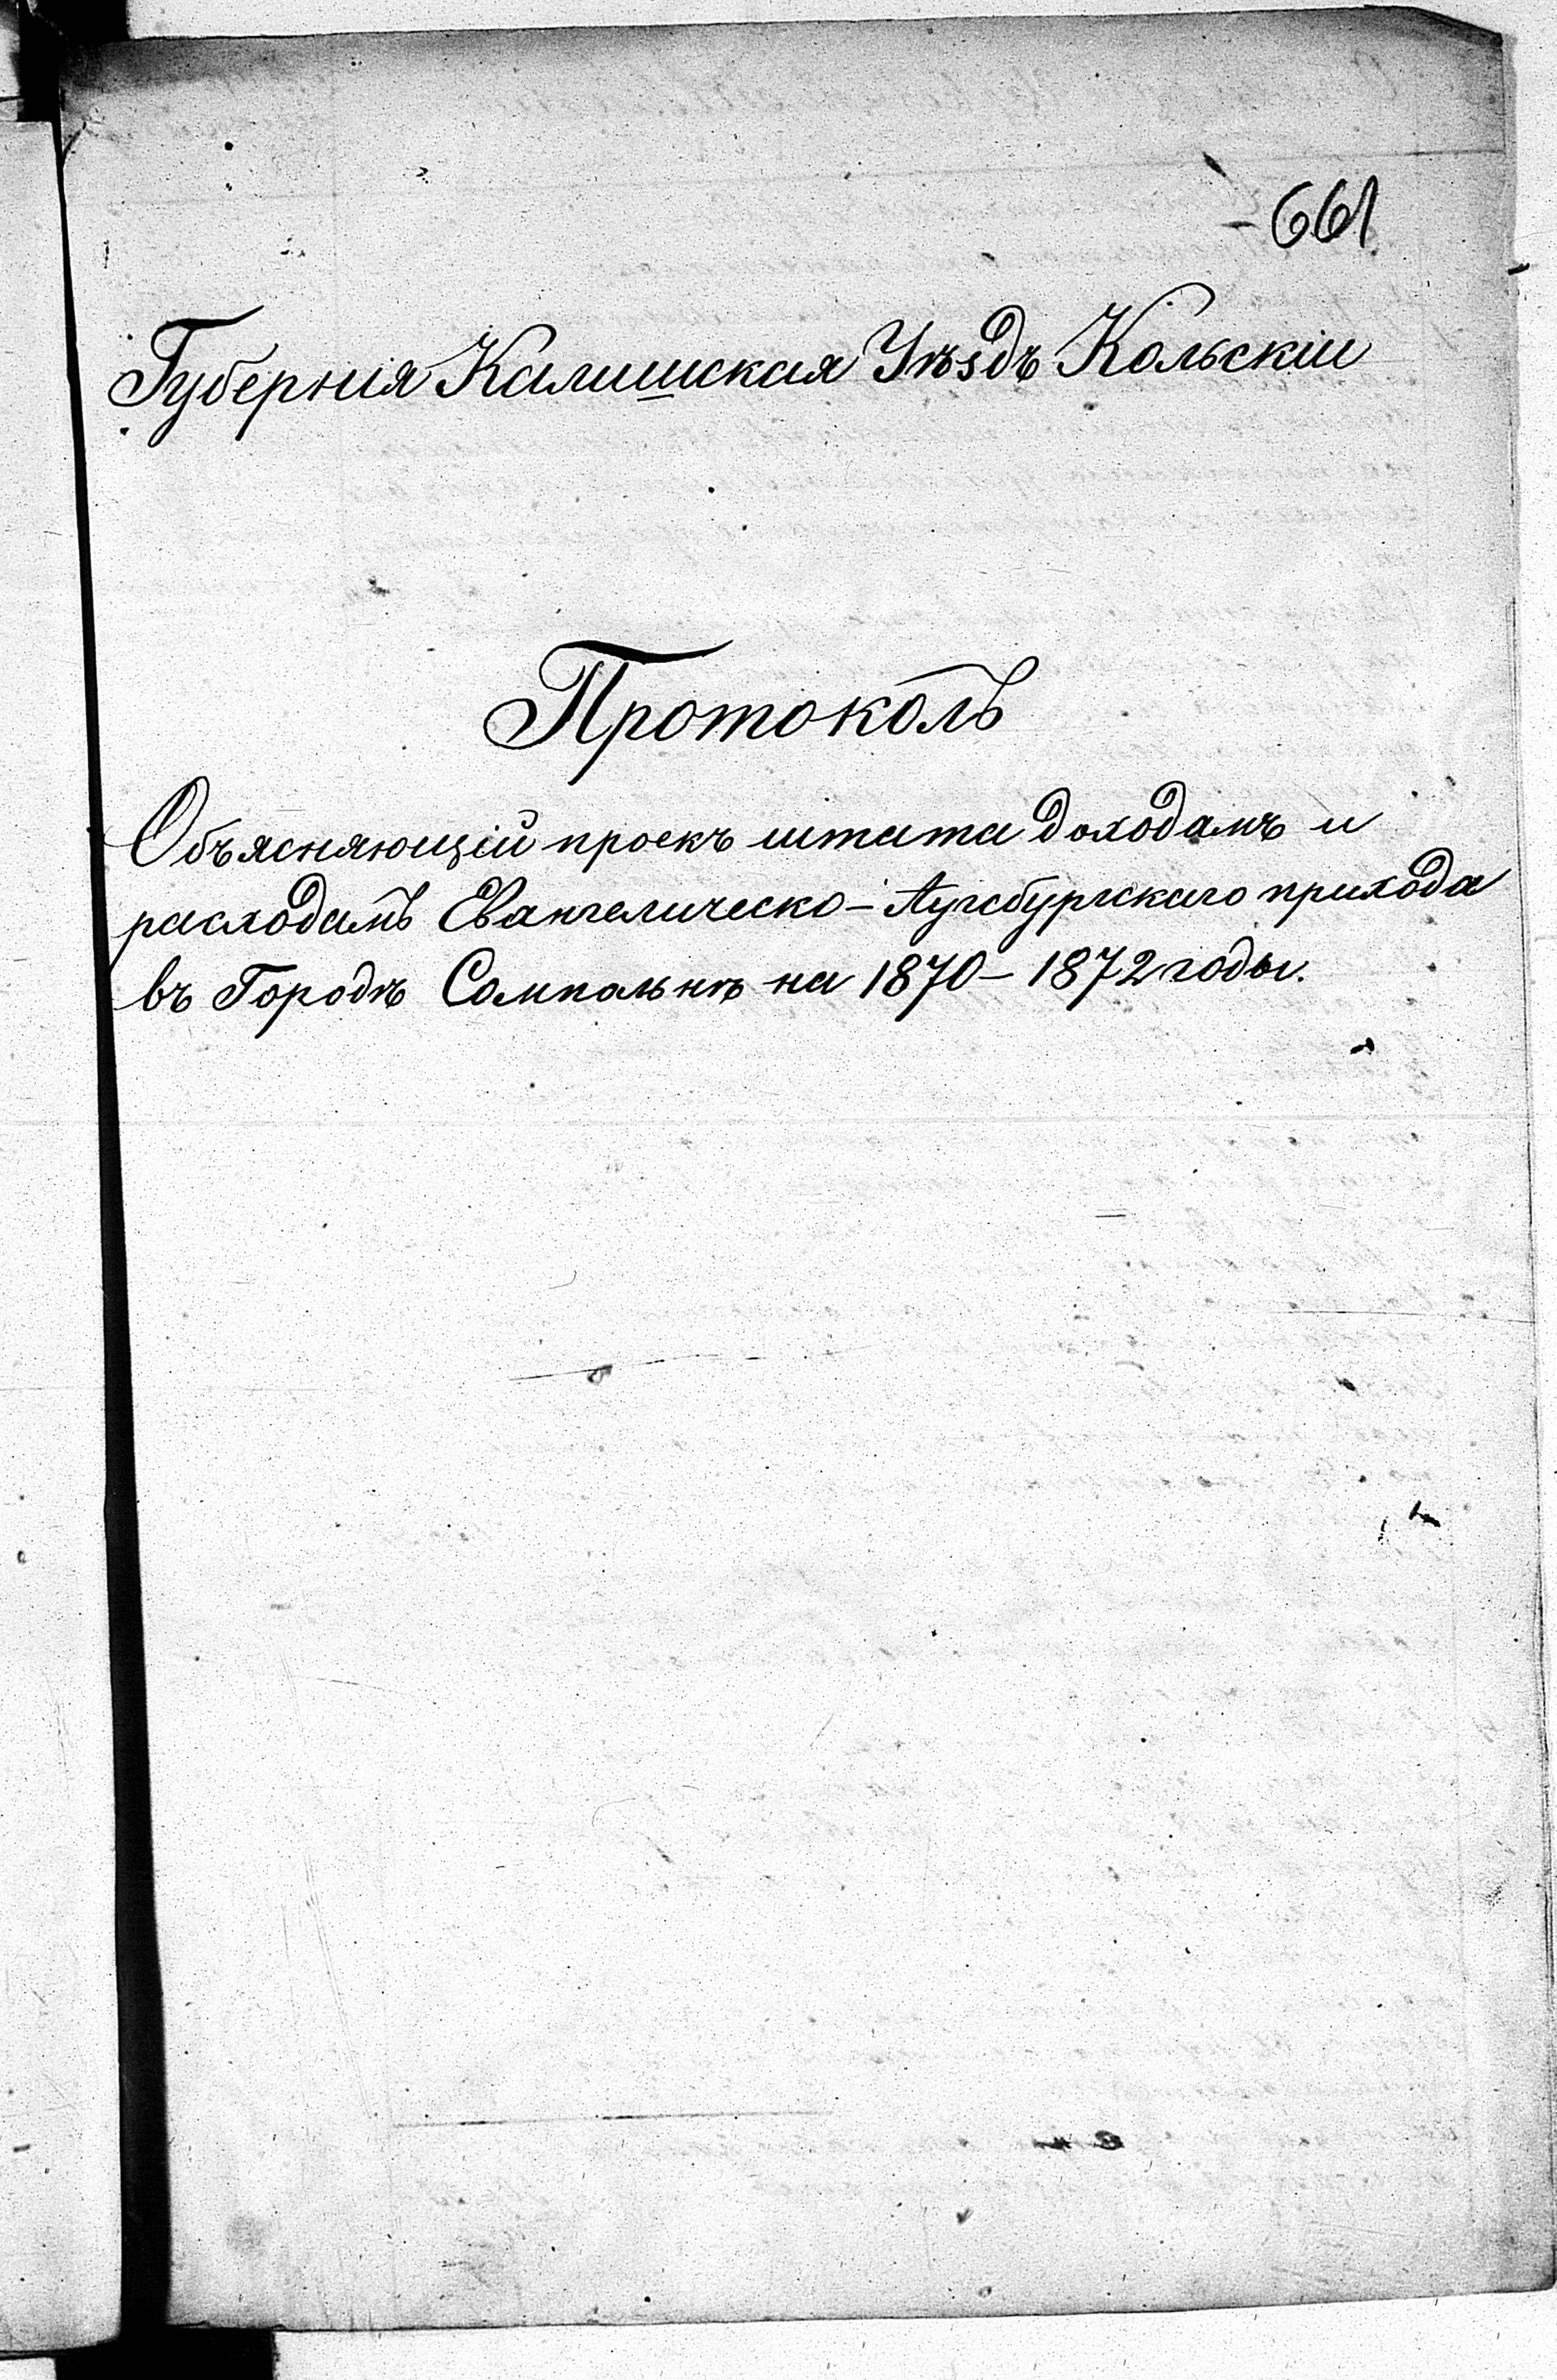 661
Губернія Калишская Уѣздъ Кольскіи
Протоколъ
Объясняющій проекъ штата доходамъ и
расходамъ Евангелическо-Аугсбургскаго прихода
въ Городѣ Сомпольнѣ на 1870-1872 годы.